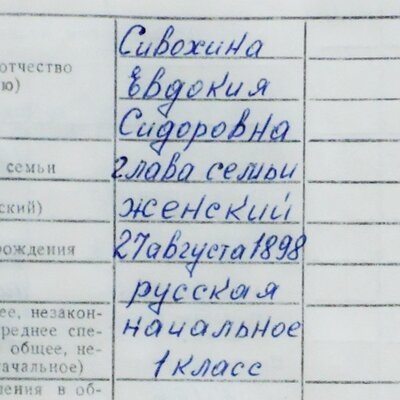 Сивохина
отчество
ю)
Евдокия
Сидоровна
семьи
глава семьи
ский)
женский
рождения
27 августа 1898
русская
ее, незакон-
реднее спе-
начальное
общее, не-
ачальное)
1 класс
ления в об-